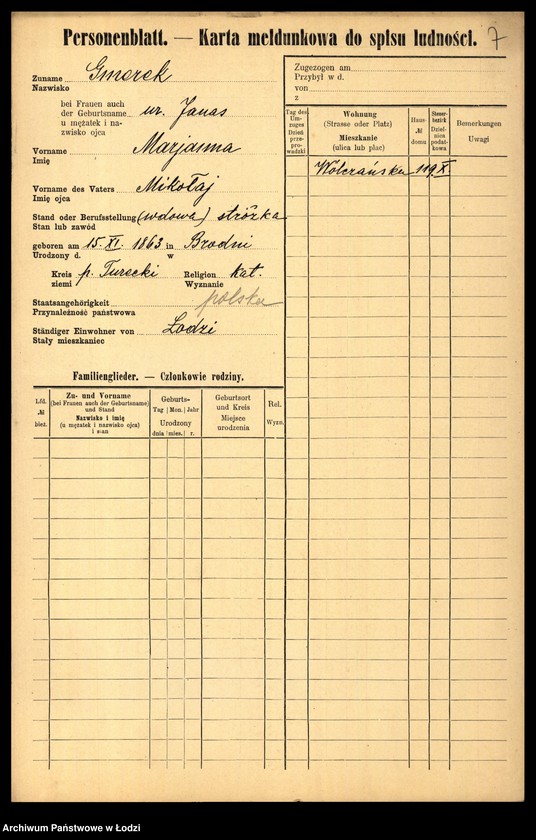 Personenblatt. — Karta meldunkowa do spisu ludności. 7
Zuname Gmerek
Nazwisko
bei Frauen auch
der Geburtsname ur. Janas
u mężatek i na-
zwisko ojca
Vorname Marjanna
Imię
Vorname des Vaters Mikołaj
Imię ojca
Stand oder Berufsstellung (wdowa) stróżka
Stan lub zawód
geboren am 15. XI. 1863 in Brodni
Urodzony d. w
Kreis p. Turecki Religion kat.
ziemi Wyznanie
Staatsangehörigkeit polska
Przynależność państwowa
Ständiger Einwohner von Łodzi
Stały mieszkaniec
Familienglieder. — Członkowie rodziny.
Lfd.
№
bież.
Zu- und Vorname
(bei Frauen auch der Geburtsname)
und Stand
Nazwisko i imię
(u mężatek i nazwisko ojca)
i stan
Geburts-
Tag Mon. Jahr
Urodzony
dnia mies. r.
Geburtsort
und Kreis
Miejsce
urodzenia
Rel.
Wyzn.
Zugezogen am
Przybył w d.
von
z
Tag des
Um-
zuges
Dzień
prze-
prowadzki
Wohnung
(Strasse oder Platz)
Mieszkanie
(ulica lub plac)
Haus-
№
domu
Steuer-
bezirk
Dziel-
nica
podat-
kowa
Bemerkungen
Uwagi
Wólczańska 119 X.
Archiwum Państwowe w Łodzi